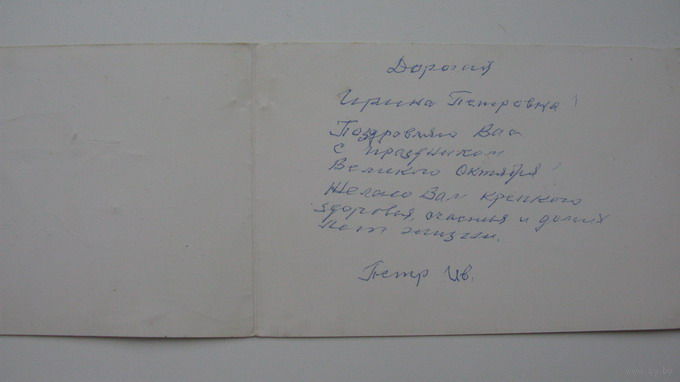 Дорогая
Ирина Петровна!
Поздравляю Вас
с праздником
Великого Октября!
Желаю Вам крепкого
здоровья, счастья и долгих
лет жизни.
Петр Ив.